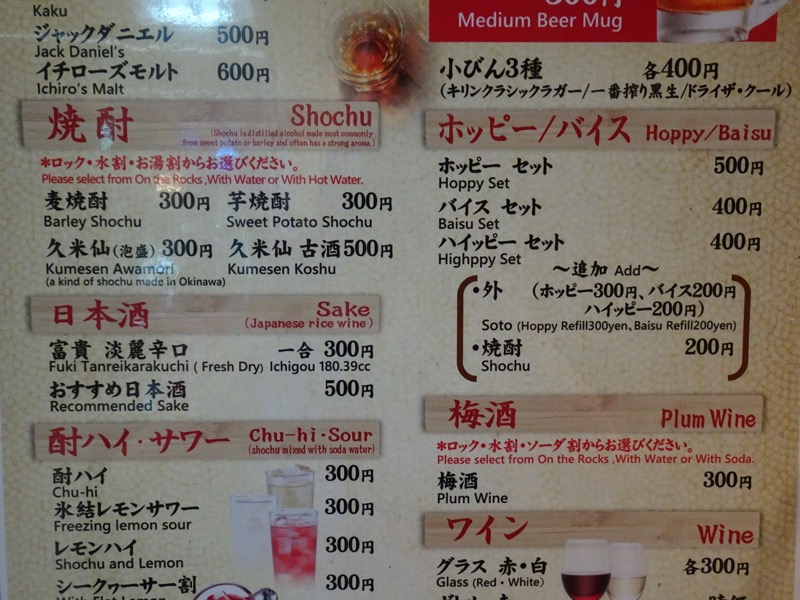 Kaku
ジャックダニエル 500円
Jack Daniel's
イチローズモルト 600円
Ichiro's Malt
焼酎 Shochu
(Shochu is distilled alcohol made most commonly
from sweet potato or barley and often has a strong aroma)
*ロック・水割・お湯割からお選びください。
Please select from On the Rocks ,With Water or With Hot Water.
麦焼酎 300円 芋焼酎 300円
Barley Shochu Sweet Potato Shochu
久米仙(泡盛) 300円 久米仙 古酒 500円
Kumesen Awamori Kumesen Koshu
(a kind of shochu made in Okinawa)
日本酒 Sake
(Japanese rice wine)
富貴 淡麗辛口 一合 300円
Fuki Tanreikarakuchi ( Fresh Dry) Ichigou 180.39cc
おすすめ日本酒 500円
Recommended Sake
酎ハイ・サワー Chu-hi・Sour
(shochu mixed with soda water)
酎ハイ 300円
Chu-hi
氷結レモンサワー 300円
Freezing lemon sour
レモンハイ 300円
Shochu and Lemon
シークヮーサー割 300円
Medium Beer Mug
小びん3種 各400円
(キリンクラシックラガー/一番搾り黒生/ドライザ・クール)
ホッピー/バイス Hoppy/Baisu
ホッピー セット 500円
Hoppy Set
バイス セット 400円
Baisu Set
ハイッピー セット 400円
Highppy Set
～追加 Add～
・外 (ホッピー300円、バイス200円
ハイッピー200円)
Soto (Hoppy Refill300yen、Baisu Refill200yen)
・焼酎 200円
Shochu
梅酒 Plum Wine
*ロック・水割・ソーダ割からお選びください。
Please select from On the Rocks ,With Water or With Soda.
梅酒 300円
Plum Wine
ワイン Wine
グラス 赤・白 各300円
Glass (Red・White)